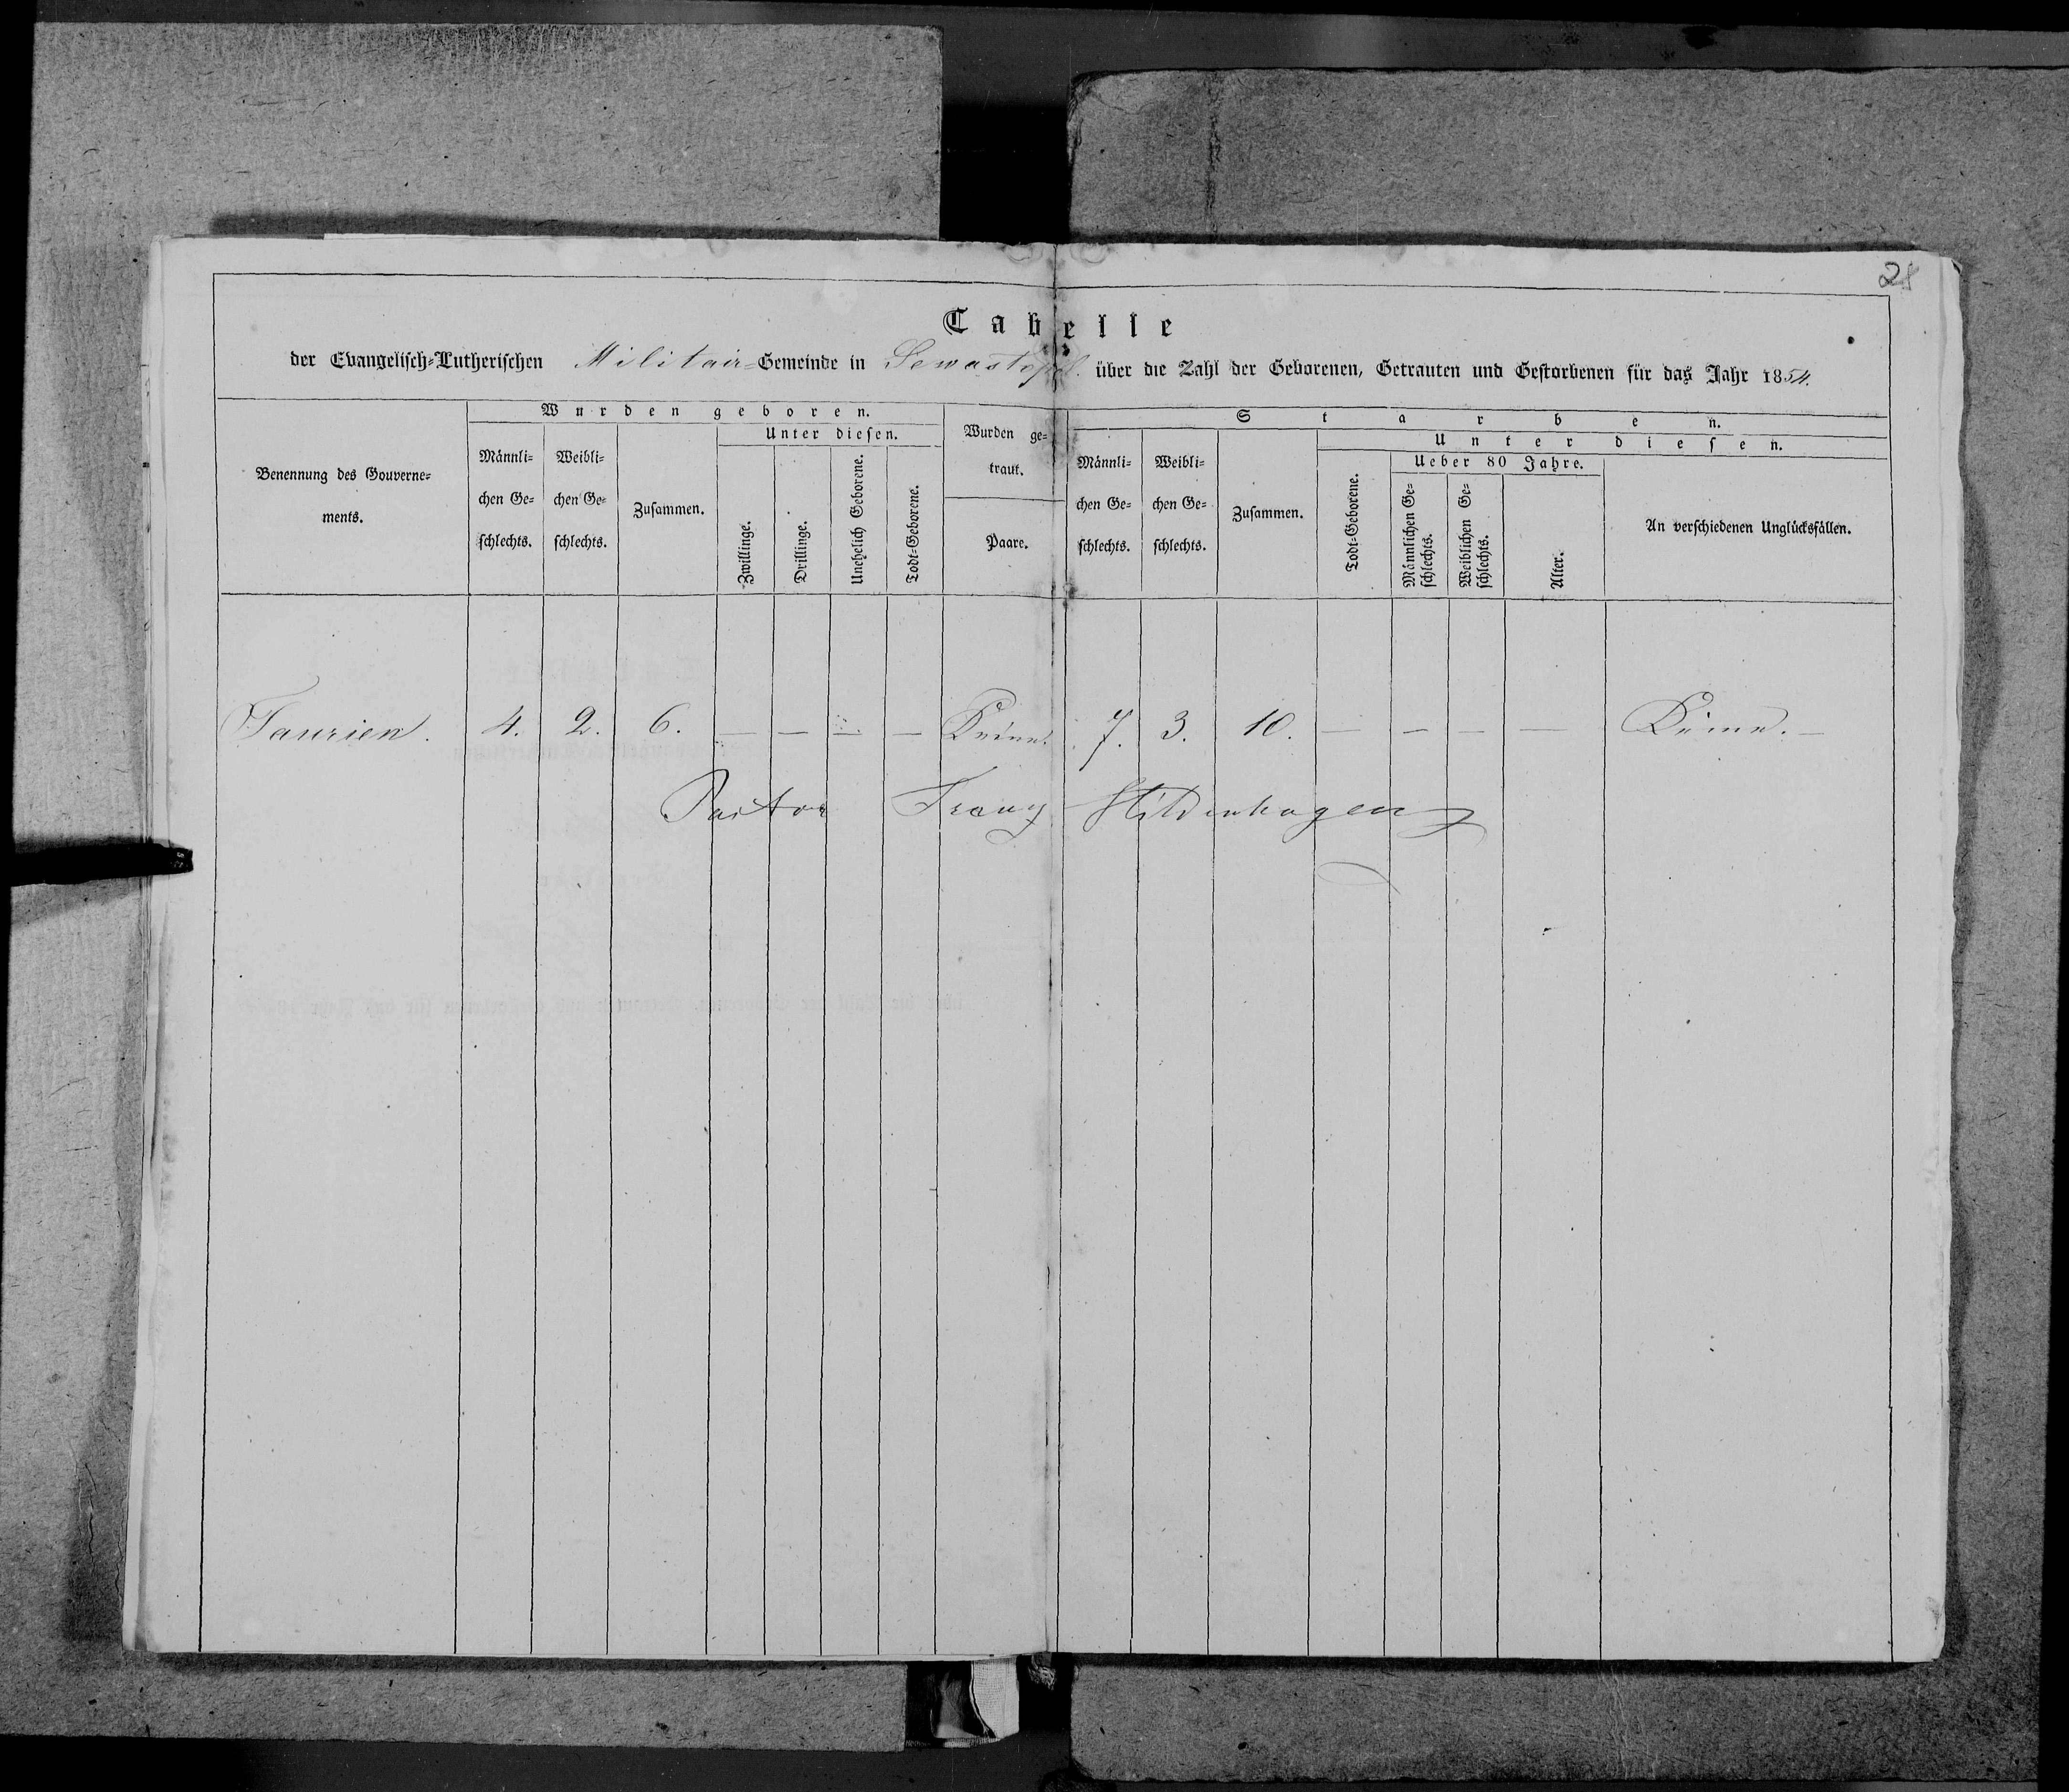 28
Tabelle
der Evangelisch-Lutherischen Militair-Gemeinde in Sewastopol. über die Zahl der Geborenen, Getrauten und Gestorbenen für das Jahr 1854.
Benennung des Gouverne-
ments.
Wurden geboren.
Männli-
chen Ge-
schlechts.
Weibli-
chen Ge-
schlechts.
Zusammen.
Unter diesen.
Zwillinge.
Drillinge.
Unehelich Geborene.
Todt-Geborene.
Wurden ge-
traut.
Paare.
Starben.
Männli-
chen Ge-
schlechts.
Weibli-
chen Ge-
schlechts.
Zusammen.
Unter diesen.
Todt-Geborene.
Ueber 80 Jahre.
Männlichen Ge-
schlechts.
Weiblichen Ge-
schlechts.
Alter.
An verschiedenen Unglücksfällen.
Taurien. 4. 2. 6. — — — — Keine. 7. 3. 10. — — — — Keine. —
Pastor Franz Hildenhagen